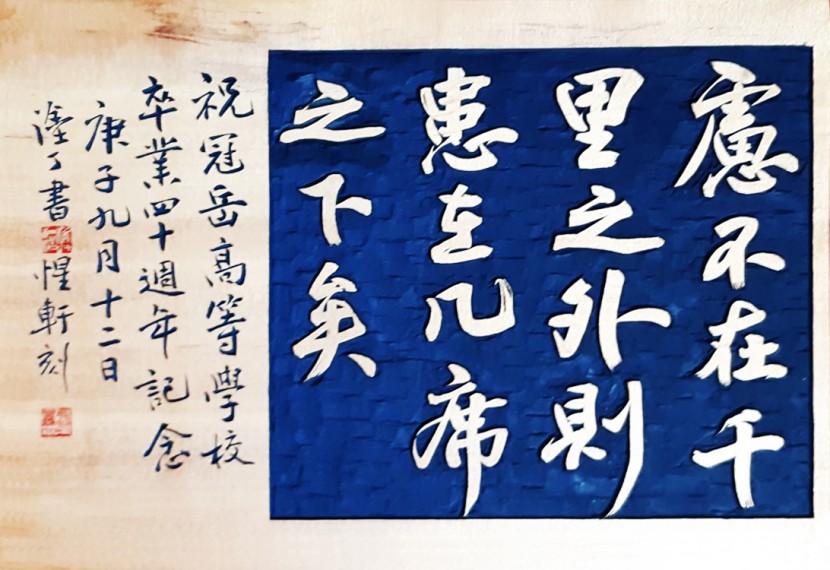 慮不在千
里之外則
患在几席
之下矣
祝冠岳高等學校
卒業四十週年記念
庚子九月十二日
丁書 惺軒刻